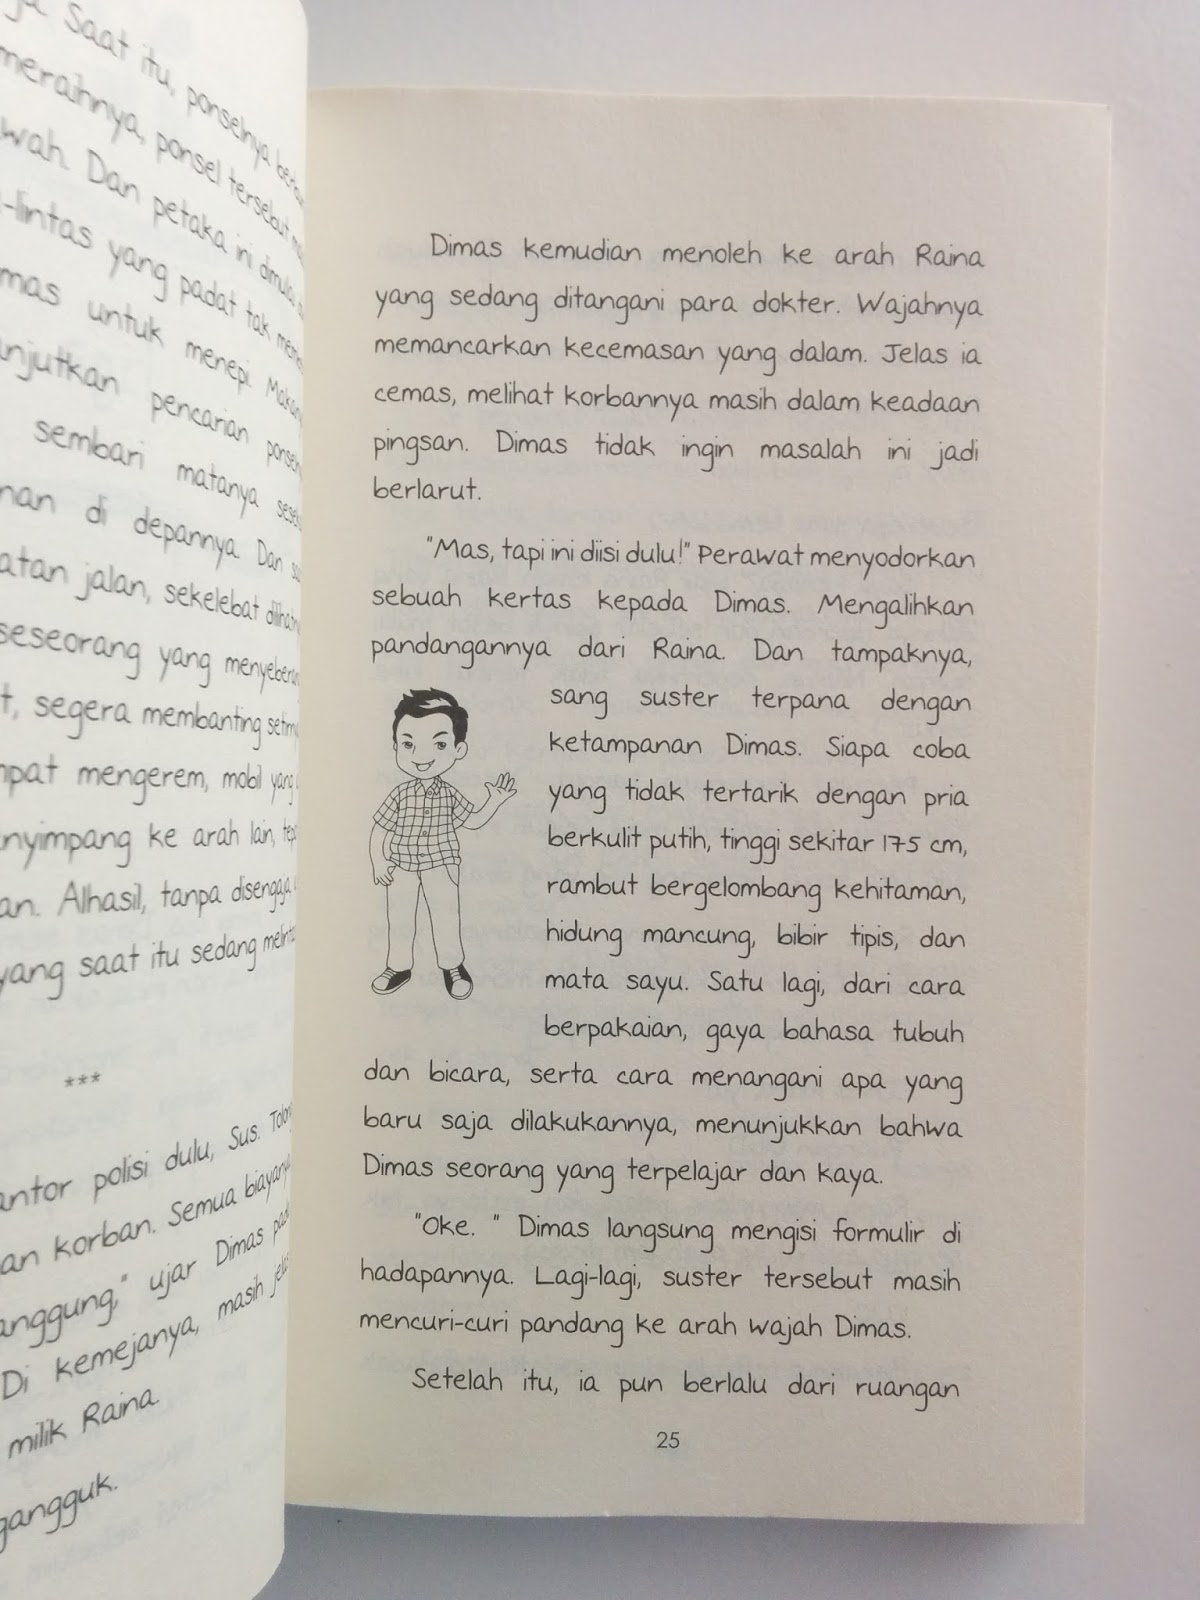 Saat itu, ponselnya
meraihnya, ponsel tersebut
Dan petaka ini dimulai
yang padat tak
untuk menepi.
pencarian
sembari matanya
di depannya. Dan
jalan, sekelebat
seseorang yang
segera membanting
mengerem, mobil yang
ke arah lain,
Alhasil, tanpa disengaja
yang saat itu sedang
***
polisi dulu, Sus.
korban. Semua
ujar Dimas
Di kemejanya, masih
milik Raina.
Dimas kemudian menoleh ke arah Raina
yang sedang ditangani para dokter. Wajahnya
memancarkan kecemasan yang dalam. Jelas ia
cemas, melihat korbannya masih dalam keadaan
pingsan. Dimas tidak ingin masalah ini jadi
berlarut.
"Mas, tapi ini diisi dulu!" Perawat menyodorkan
sebuah kertas kepada Dimas. Mengalihkan
pandangannya dari Raina. Dan tampaknya,
sang suster terpana dengan
ketampanan Dimas. Siapa coba
yang tidak tertarik dengan pria
berkulit putih, tinggi sekitar 175 cm,
rambut bergelombang kehitaman,
hidung mancung, bibir tipis, dan
mata sayu. Satu lagi, dari cara
berpakaian, gaya bahasa tubuh
dan bicara, serta cara menangani apa yang
baru saja dilakukannya, menunjukkan bahwa
Dimas seorang yang terpelajar dan kaya.
"Oke. " Dimas langsung mengisi formulir di
hadapannya. Lagi-lagi, suster tersebut masih
mencuri-curi pandang ke arah wajah Dimas.
Setelah itu, ia pun berlalu dari ruangan
25